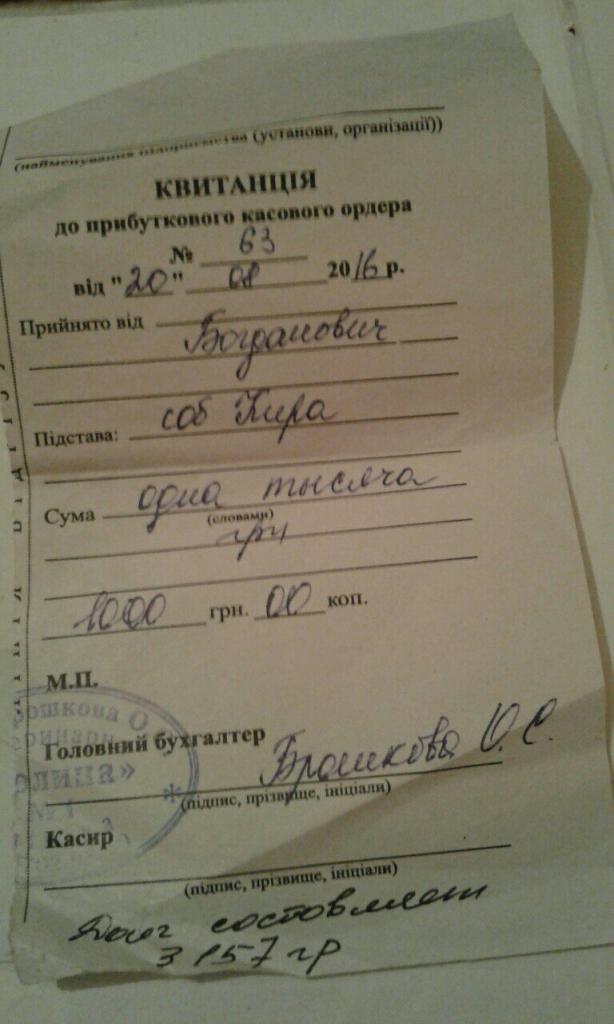 (найменування підприємства (установи, організації))
КВИТАНЦІЯ
до прибуткового касового ордера
№ 63
від "20" 08 2016 р.
Прийнято від
Богданович
Підстава: соб Кира
Сума одна тысяча
(словами)
грн
1000 грн. 00 коп.
М.П.
Головний бухгалтер Брошкова О. С.
(підпис, прізвище, ініціали)
Касир
(підпис, прізвище, ініціали)
Долг состовляет
3157 гр